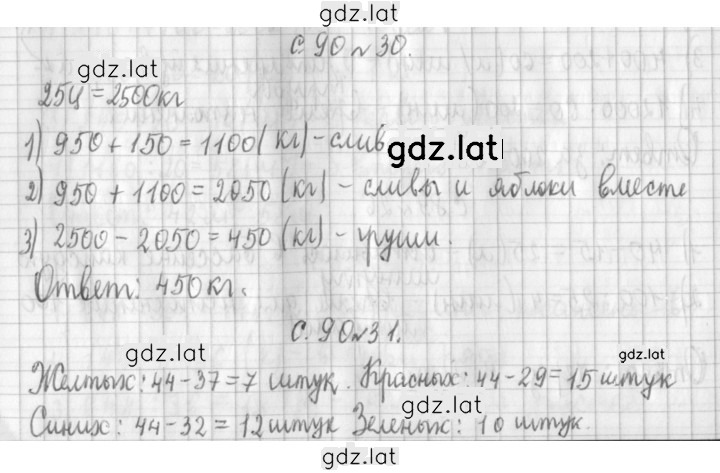 gdz.lat
с. 90 № 30.
gdz.lat
25ц = 2500кг
1) 950 + 150 = 1100 (кг) - слив
gdz.lat
2) 950 + 1100 = 2050 (кг) - сливы и яблоки вместе
3) 2500 - 2050 = 450 (кг) - груши.
Ответ: 450 кг.
с. 90 № 31.
gdz.lat
gdz.lat
Желтых: 44 - 37 = 7 штук. Красных: 44 - 29 = 15 штук
gdz.lat
Синих: 44 - 32 = 12 штук Зеленых: 10 штук.
gdz.lat